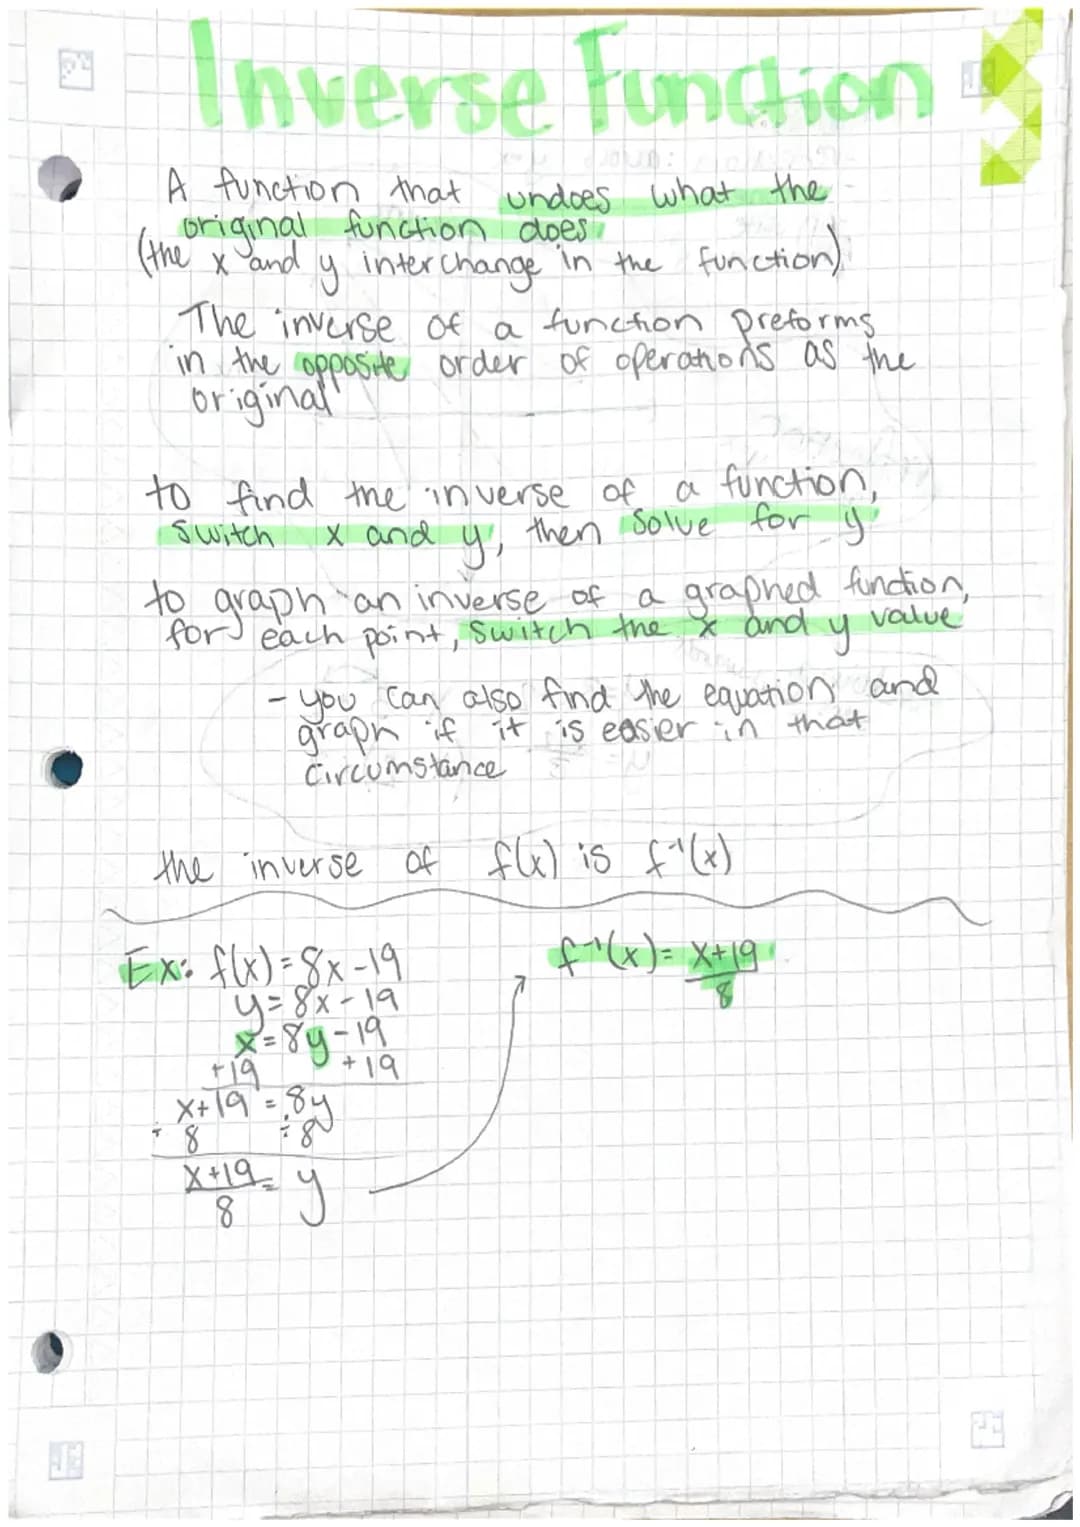 Inverse Function
A function that undoes what the
original function does
(the x and y interchange in the function)
The inverse of a function preforms
in the opposite order of operations as the
original
to find the inverse of a function,
switch x and y, then solve for y
to graph an inverse of a graphed function,
for each point, switch the x and y value
- you can also find the equation and
graph if it is easier in that
circumstance
the inverse of f(x) is f⁻¹(x)
Ex: f(x)=8x-19
y=8x-19
x=8y-19
+19 +19
x+19=8y
÷8 ÷8
x+19/8=y
f⁻¹(x)=x+19/8